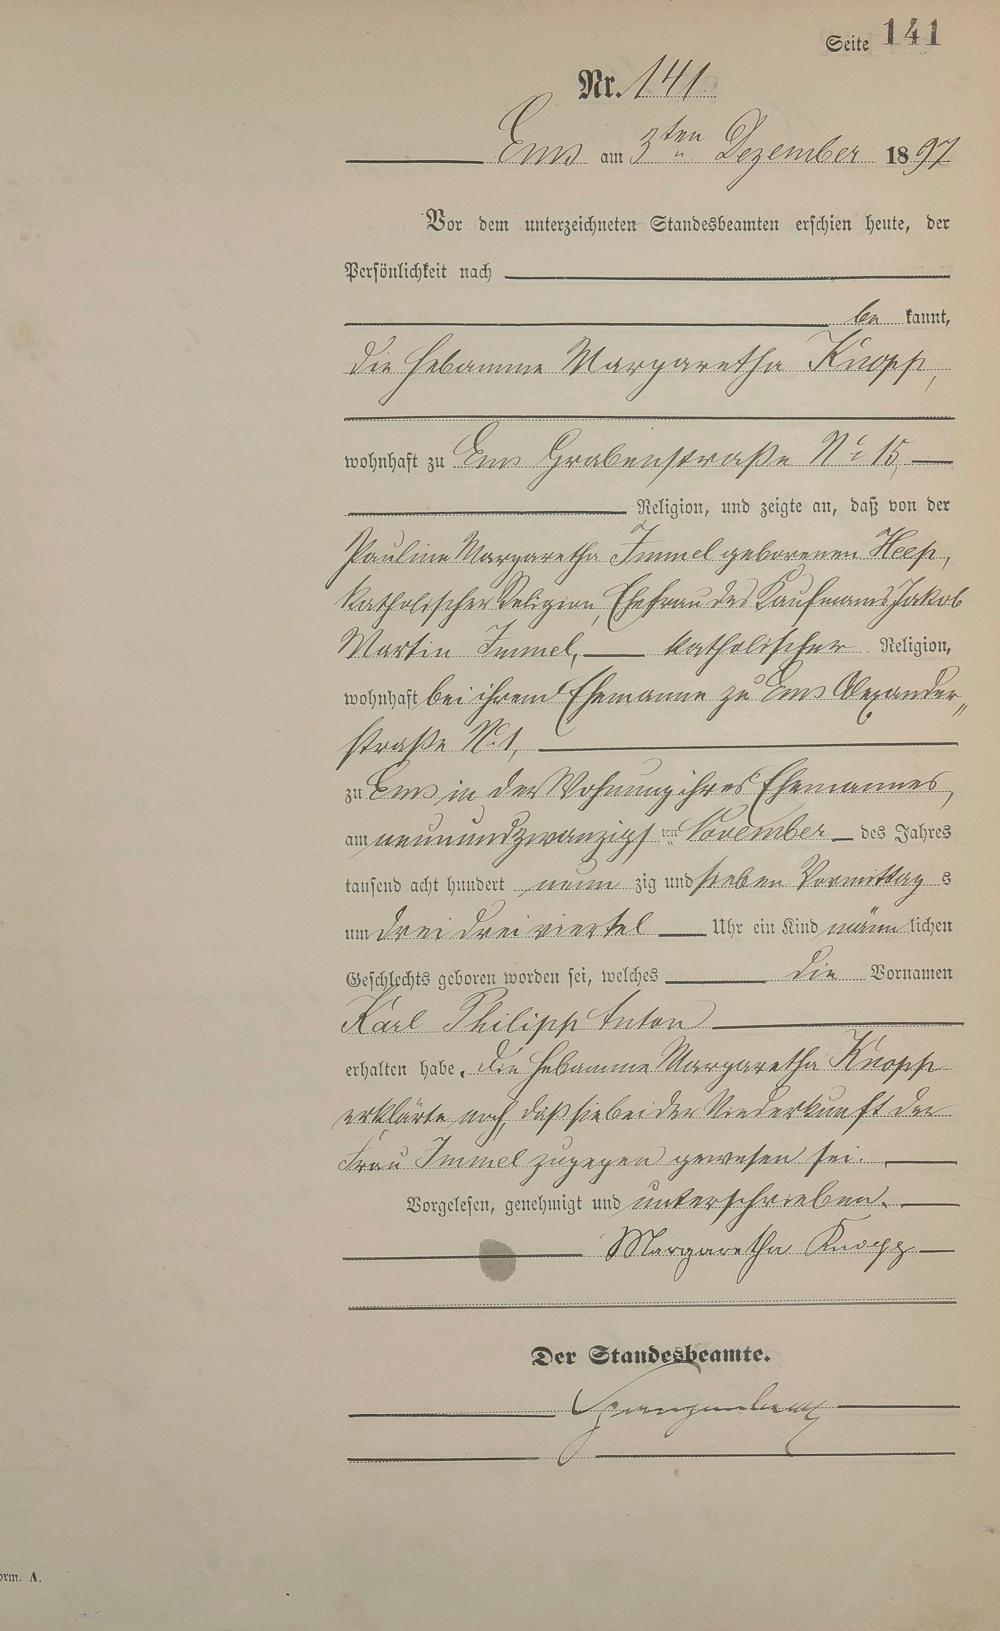 Seite 141
Nr. 141
Ems am 3ten Dezember 1897
Vor dem unterzeichneten Standesbeamten erschien heute, der
Persönlichkeit nach
be kannt,
die Hebamme Margaretha Knopp,
wohnhaft zu Ems Grabenstraße No 15,
Religion, und zeigte an, daß von der
Pauline Margaretha Immel geborenen Heep,
katholischer Religion, Ehefrau des Kaufmanns Jakob
Martin Immel, katholischer Religion,
wohnhaft bei ihrem Ehemanne zu Ems Alexander„
straße No 1,
zu Ems in der Wohnung ihres Ehemannes,
am neunundzwanzigsten November des Jahres
tausend acht hundert neun zig und sieben Vormittags
um drei drei viertel Uhr ein Kind männlichen
Geschlechts geboren worden sei, welches die Vornamen
Karl Philipp Anton
erhalten habe. Die Hebamme Margaretha Knopp
erklärte noch, daß sie bei der Niederkunft der
Frau Immel zugegen gewesen sei.
Vorgelesen, genehmigt und unterschrieben.
Margaretha Knopp
Der Standesbeamte.
orm. A.